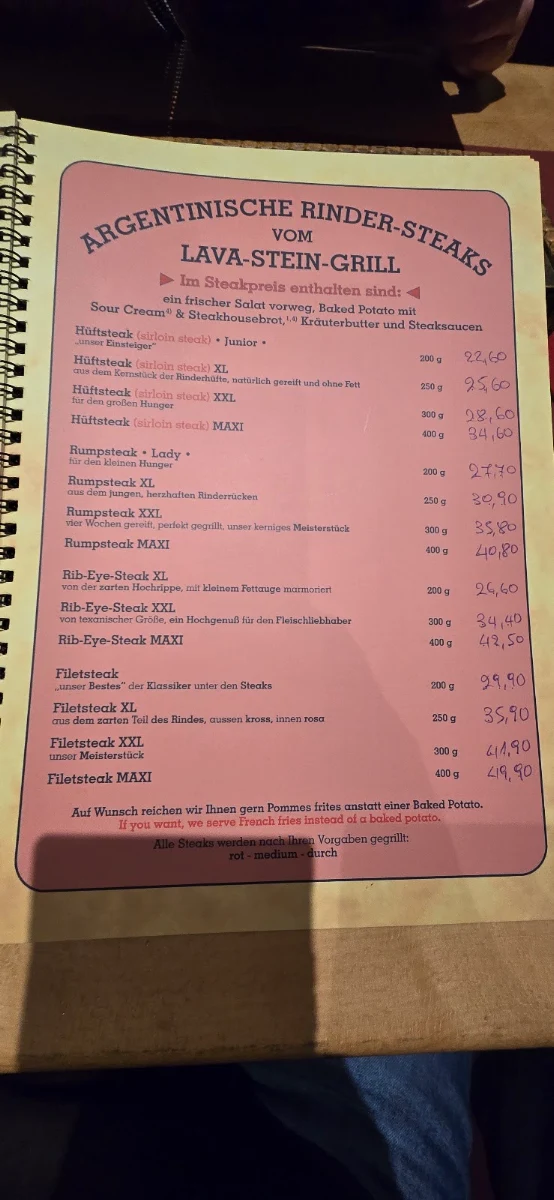 ARGENTINISCHE RINDER-STEAKS
VOM
LAVA-STEIN-GRILL
▶ Im Steakpreis enthalten sind: ◀
ein frischer Salat vorweg, Baked Potato mit
Sour Cream⁴⁾ & Steakhousebrot,¹,⁴⁾ Kräuterbutter und Steaksaucen
Hüftsteak (sirloin steak) • Junior • 200 g 22,60
„unser Einsteiger"
Hüftsteak (sirloin steak) XL 250 g 25,60
aus dem Kernstück der Rinderhüfte, natürlich gereift und ohne Fett
Hüftsteak (sirloin steak) XXL 300 g 28,60
für den großen Hunger
Hüftsteak (sirloin steak) MAXI 400 g 34,60
Rumpsteak • Lady • 200 g 27,70
für den kleinen Hunger
Rumpsteak XL 250 g 30,90
aus dem jungen, herzhaften Rinderrücken
Rumpsteak XXL 300 g 35,80
vier Wochen gereift, perfekt gegrillt, unser kerniges Meisterstück
Rumpsteak MAXI 400 g 40,80
Rib-Eye-Steak XL 200 g 26,60
von der zarten Hochrippe, mit kleinem Fettauge marmoriert
Rib-Eye-Steak XXL 300 g 34,40
von texanischer Größe, ein Hochgenuß für den Fleischliebhaber
Rib-Eye-Steak MAXI 400 g 42,50
Filetsteak 200 g 29,90
„unser Bestes" der Klassiker unter den Steaks
Filetsteak XL 250 g 35,90
aus dem zarten Teil des Rindes, aussen kross, innen rosa
Filetsteak XXL 300 g 41,90
unser Meisterstück
Filetsteak MAXI 400 g 49,90
Auf Wunsch reichen wir Ihnen gern Pommes frites anstatt einer Baked Potato.
If you want, we serve French fries instead of a baked potato.
Alle Steaks werden nach Ihren Vorgaben gegrillt:
rot - medium - durch